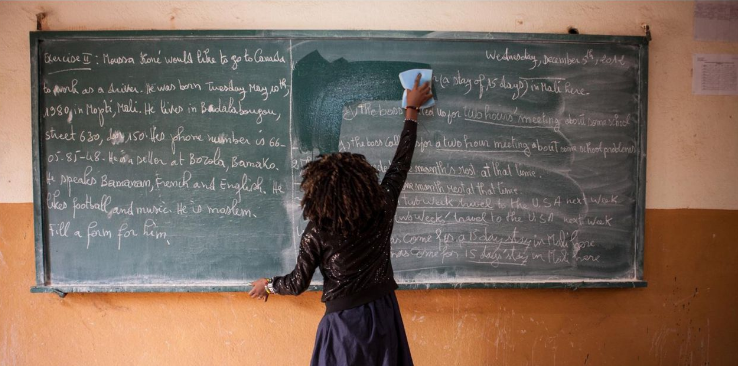 Exercise II: Moussa Koné would like to go to Canada
to work as a driver. He was born Tuesday May 10th,
1980, in Mopti, Mali. He lives in Badalabougou,
street 630, 150. His phone number is 66-
05-85-48. He is a seller at Bozola, Bamako.
He speaks Bamanan, French and English. He
likes football, and music. He is moslem.
Fill a form for him.
Wednesday, December 5th, 2012
(a stay of 15 days) in Mali here.
The boss us for two hours' meeting about some school
the boss for a two hour meeting about some school problems
month's rest at that time.
one month rest at that time
travel to the U.S.A next week
two weeks' travel to the USA next week
come for a 15 day stay in Mali here
come for 15 days' stay in Mali here